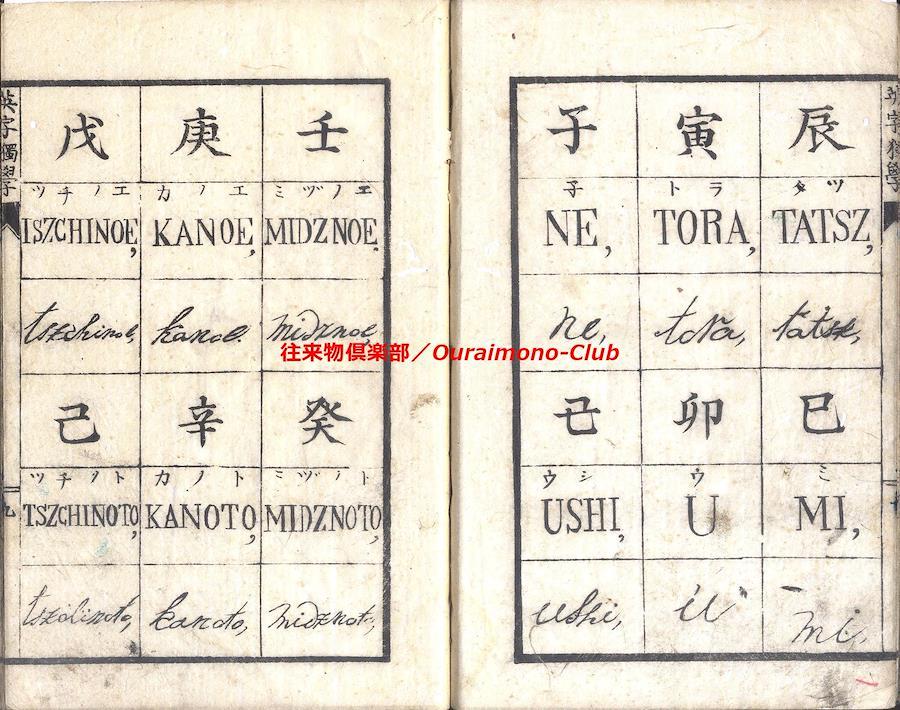 英字獨學
戊 庚 壬
ツチノエ カノエ ミヅノエ
ISZCHINOE, KANOE, MIDZNOE.
tszchinoe, kanoe. midznoe,
己 辛 癸
ツチノト カノト ミヅノト
TSZCHINOTO, KANOTO, MIDZNOTO,
tszchinoto, kanoto, midznoto,
九
子 寅 辰
子 トラ タツ
NE, TORA, TATSZ,
ne, tora, tatsz,
丑 卯 巳
ウシ ウ ミ
USHI, U MI,
ushi, u mi,
英字獨學
往来物倶楽部／Ouraimono-Club